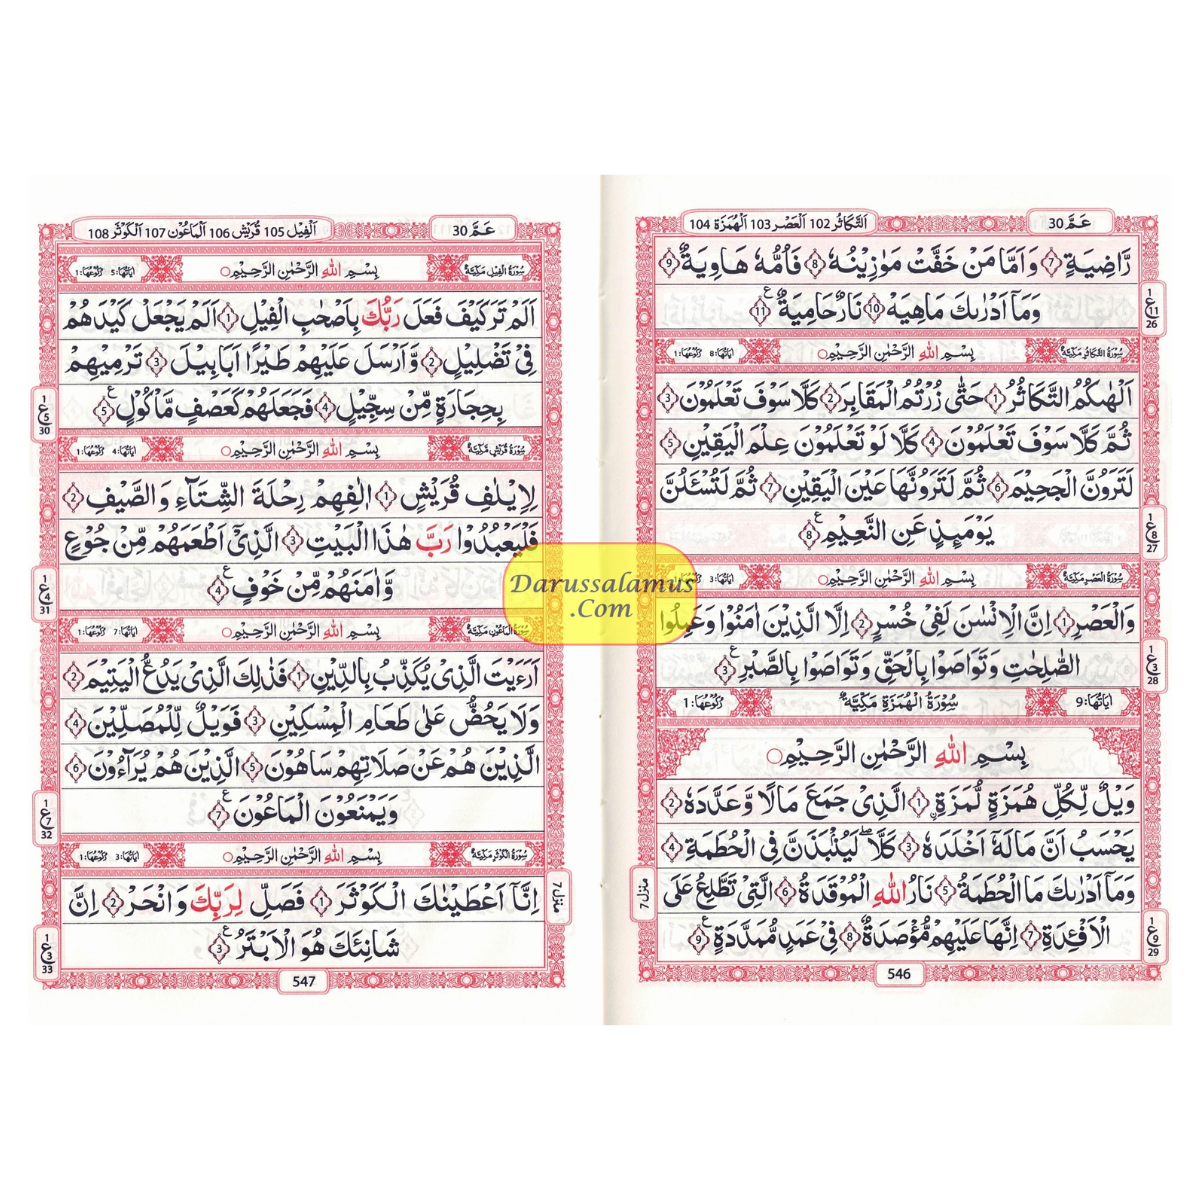 عَمَّ 30
اَلتَّكَاثُر 102 اَلْعَصْر 103 اَلْهُمَزَة 104
رَّاضِيَةٍ ﴿7﴾ وَاَمَّا مَنْ خَفَّتْ مَوٰزِينُهٗ ﴿8﴾ فَاُمُّهٗ هَاوِيَةٌ ﴿9﴾
وَمَآ اَدْرٰىكَ مَاهِيَهْ ﴿10﴾ نَارٌ حَامِيَةٌ ﴿11﴾
1 ع 11 26
سُوْرَةُ التَّكَاثُرِ مَكِّيَّةٌ بِسْمِ اللّٰهِ الرَّحْمٰنِ الرَّحِيْمِ اٰيَاتُهَا: 8 رُكُوْعُهَا: 1
اَلْهٰىكُمُ التَّكَاثُرُ ﴿1﴾ حَتّٰى زُرْتُمُ الْمَقَابِرَ ﴿2﴾ كَلَّا سَوْفَ تَعْلَمُوْنَ ﴿3﴾
ثُمَّ كَلَّا سَوْفَ تَعْلَمُوْنَ ﴿4﴾ كَلَّا لَوْ تَعْلَمُوْنَ عِلْمَ الْيَقِيْنِ ﴿5﴾
لَتَرَوُنَّ الْجَحِيْمَ ﴿6﴾ ثُمَّ لَتَرَوُنَّهَا عَيْنَ الْيَقِيْنِ ﴿7﴾ ثُمَّ لَتُسْـَٔلُنَّ
يَوْمَىِٕذٍ عَنِ النَّعِيْمِ ﴿8﴾
1 ع 8 27
سُوْرَةُ الْعَصْرِ مَكِّيَّةٌ بِسْمِ اللّٰهِ الرَّحْمٰنِ الرَّحِيْمِ اٰيَاتُهَا: 3
وَالْعَصْرِ ﴿1﴾ اِنَّ الْاِنْسٰنَ لَفِيْ خُسْرٍ ﴿2﴾ اِلَّا الَّذِيْنَ اٰمَنُوْا وَعَمِلُوا
الصّٰلِحٰتِ وَتَوَاصَوْا بِالْحَقِّ وَتَوَاصَوْا بِالصَّبْرِ ﴿3﴾
1 ع 3 28
اٰيَاتُهَا: 9 سُوْرَةُ الْهُمَزَةِ مَكِّيَّةٌ رُكُوْعُهَا: 1
بِسْمِ اللّٰهِ الرَّحْمٰنِ الرَّحِيْمِ
وَيْلٌ لِّكُلِّ هُمَزَةٍ لُّمَزَةٍ ﴿1﴾ الَّذِيْ جَمَعَ مَالًا وَّعَدَّدَهٗ ﴿2﴾
يَحْسَبُ اَنَّ مَالَهٗٓ اَخْلَدَهٗ ﴿3﴾ كَلَّا لَيُنْۢبَذَنَّ فِي الْحُطَمَةِ ﴿4﴾
وَمَآ اَدْرٰىكَ مَا الْحُطَمَةُ ﴿5﴾ نَارُ اللّٰهِ الْمُوْقَدَةُ ﴿6﴾ الَّتِيْ تَطَّلِعُ عَلَى
الْاَفْـِٕدَةِ ﴿7﴾ اِنَّهَا عَلَيْهِمْ مُّؤْصَدَةٌ ﴿8﴾ فِيْ عَمَدٍ مُّمَدَّدَةٍ ﴿9﴾
1 ع 9 29
منزل 7
546
عَمَّ 30
اَلْفِيْل 105 قُرَيْش 106 اَلْمَاعُوْن 107 اَلْكَوْثَر 108
سُوْرَةُ الْفِيْلِ مَكِّيَّةٌ بِسْمِ اللّٰهِ الرَّحْمٰنِ الرَّحِيْمِ اٰيَاتُهَا: 5 رُكُوْعُهَا: 1
اَلَمْ تَرَ كَيْفَ فَعَلَ رَبُّكَ بِاَصْحٰبِ الْفِيْلِ ﴿1﴾ اَلَمْ يَجْعَلْ كَيْدَهُمْ
فِيْ تَضْلِيْلٍ ﴿2﴾ وَّاَرْسَلَ عَلَيْهِمْ طَيْرًا اَبَابِيْلَ ﴿3﴾ تَرْمِيْهِمْ
بِحِجَارَةٍ مِّنْ سِجِّيْلٍ ﴿4﴾ فَجَعَلَهُمْ كَعَصْفٍ مَّاْكُوْلٍ ﴿5﴾
1 ع 5 30
سُوْرَةُ قُرَيْشٍ مَكِّيَّةٌ بِسْمِ اللّٰهِ الرَّحْمٰنِ الرَّحِيْمِ اٰيَاتُهَا: 4 رُكُوْعُهَا: 1
لِاِيْلٰفِ قُرَيْشٍ ﴿1﴾ اٖلٰفِهِمْ رِحْلَةَ الشِّتَآءِ وَالصَّيْفِ ﴿2﴾
فَلْيَعْبُدُوْا رَبَّ هٰذَا الْبَيْتِ ﴿3﴾ الَّذِيْٓ اَطْعَمَهُمْ مِّنْ جُوْعٍ
وَّاٰمَنَهُمْ مِّنْ خَوْفٍ ﴿4﴾
1 ع 4 31
سُوْرَةُ الْمَاعُوْنِ مَكِّيَّةٌ بِسْمِ اللّٰهِ الرَّحْمٰنِ الرَّحِيْمِ اٰيَاتُهَا: 7 رُكُوْعُهَا: 1
اَرَءَيْتَ الَّذِيْ يُكَذِّبُ بِالدِّيْنِ ﴿1﴾ فَذٰلِكَ الَّذِيْ يَدُعُّ الْيَتِيْمَ ﴿2﴾
وَلَا يَحُضُّ عَلٰى طَعَامِ الْمِسْكِيْنِ ﴿3﴾ فَوَيْلٌ لِّلْمُصَلِّيْنَ ﴿4﴾
الَّذِيْنَ هُمْ عَنْ صَلَاتِهِمْ سَاهُوْنَ ﴿5﴾ الَّذِيْنَ هُمْ يُرَآءُوْنَ ﴿6﴾
وَيَمْنَعُوْنَ الْمَاعُوْنَ ﴿7﴾
1 ع 7 32
سُوْرَةُ الْكَوْثَرِ مَكِّيَّةٌ بِسْمِ اللّٰهِ الرَّحْمٰنِ الرَّحِيْمِ اٰيَاتُهَا: 3 رُكُوْعُهَا: 1
اِنَّآ اَعْطَيْنٰكَ الْكَوْثَرَ ﴿1﴾ فَصَلِّ لِرَبِّكَ وَانْحَرْ ﴿2﴾ اِنَّ
شَانِئَكَ هُوَ الْاَبْتَرُ ﴿3﴾
1 ع 3 33
منزل 7
547
Darussalamus
.Com